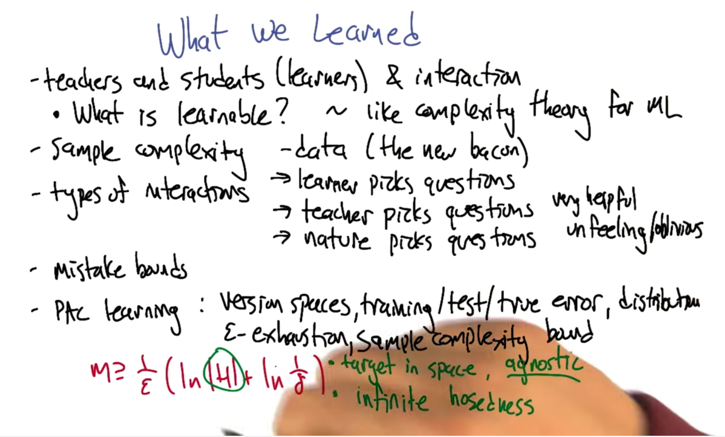 What We Learned
- teachers and students (learners) & interaction
• What is learnable? ~ like complexity theory for ML
- Sample complexity - data (the new bacon)
- types of interactions → learner picks questions
→ teacher picks questions very helpful
→ nature picks questions unfeeling/oblivious
- mistake bounds
- PAC learning : version spaces, training/test/true error, distribution
ε-exhaustion, sample complexity bound
m ≥ 1/ε (ln |H| + ln 1/δ) • target in space, agnostic
• infinite hosedness